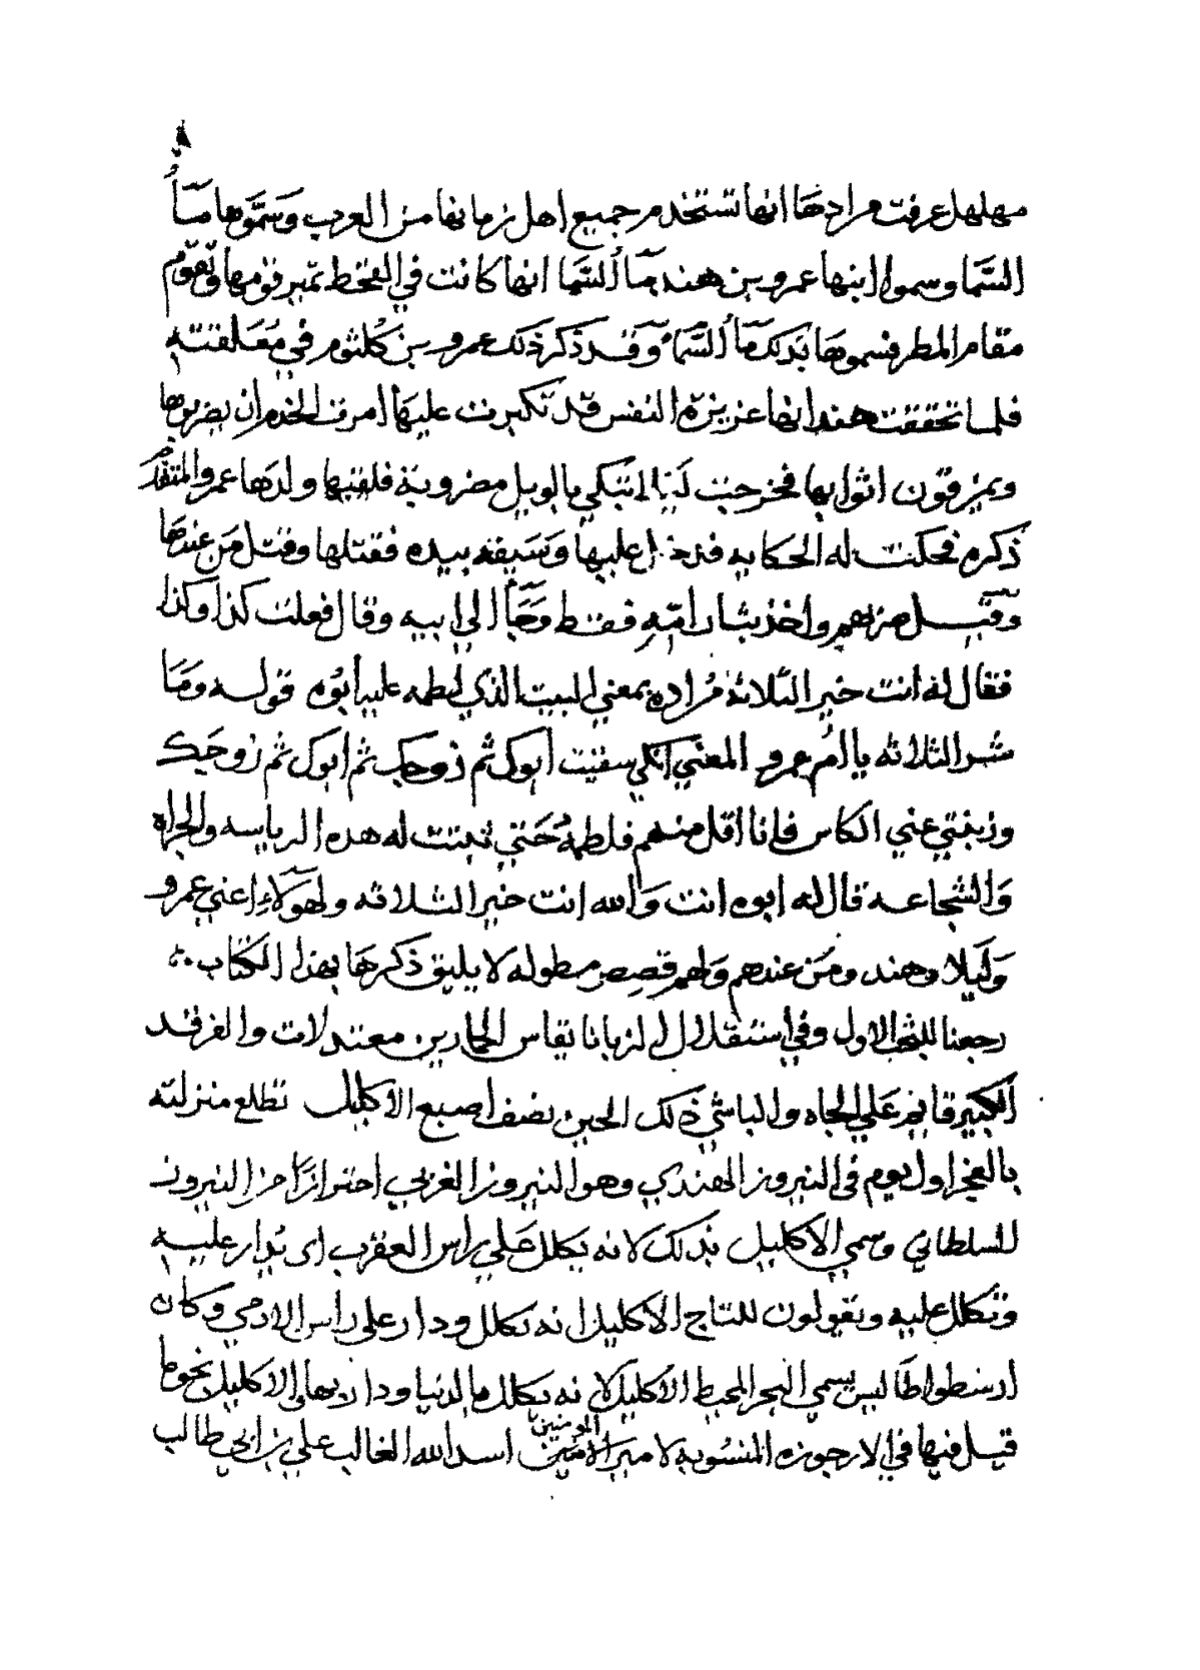 مهلهل عرفت مرادها انها تستخدم جميع اهل زمانها من العرب وسمّوها مآ
السّما وسموا ابنها عمرو بن هند مآ السّما انها كانت في القحط تمير قومها وتقوم
مقام المطر فسموها بذلك مآ السّمآ وقد ذكر ذلك عمرو بن كُلثوم في مُعَلقته
فلما تحققت هند انها عزيزه النفس قد تكبرت عليها امرت الخدم ان يضربوها
ويمزقون اثوابها فخرجت ليلا تبكي بالويل مضروبة فلقيها ولدها عمرو المتقدم
ذكره فحكت له الحكايه فدخل عليها وسيفه بيده فقتلها وقتل من عندها
وقتل من بهم واخذ بثار امّه فقط وجآ الي ابيه وقال فعلت كذا وكذا
فقال له انت خير الثلاثة مُراده بمعني البيت الذي لطمه عليه أبوه قوله وما
شر الثلاثه يا ام عمرو المعني انكي سقيت ابوك ثم زوجك ثم ابوك ثم زوجك
وزبنتي عني الكاس فانا اقل منهم فلطمهُ حَتي ثبتت له هذه الرياسه والجراه
والشجاعه قال له ابوه انت والله انت خير الثلاثه ولهولآء اعني عمرو
وَلَيلا وهند ومن عندهم ولهم قصص مطوله لا يليق ذكرها بهذا الكتاب
رجعنا للبحث الاول وفي استقلال الزبانا تقاس الحمارين معتدلات والفرقد
الكبير قايم علي الجاه والباشي ذلك الحين نصف اصبع الاكليل تطلع منزلته
بالفجر اول يوم في النيروز الهندي وهو النيروز العربي احترازًا من النيروز
السلطاني وسمي الاكليل بذلك لانه يكلل علي راس العقرب اى يُدار عليه
وتكلل عليه ويقولون للتاج الاكليل انه تكلل ودار علي راس الادمي وكان
ارسطواطاليس يسمي البحر المحيط الاكليل لانه يكلل بالدنيا ودار بها والاكليل نحوما
قيل فيها في الارجوزه المنسُوبه لامير المومنين اسد الله الغالب علي بن ابي طالب